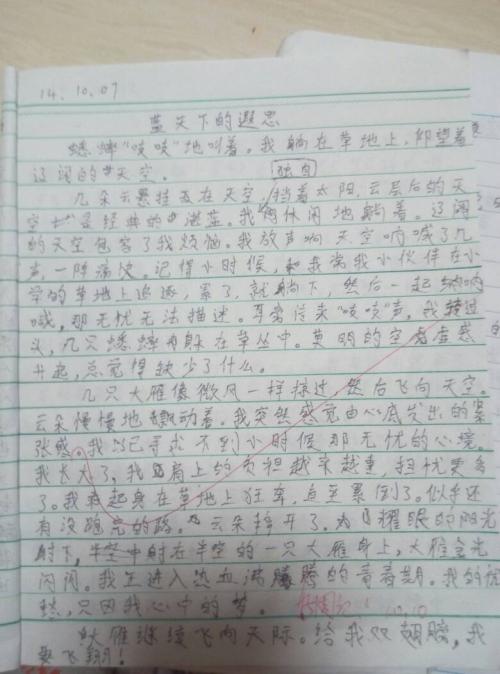 14.10.07
蓝天下的遐思
蟋蟀“吱吱”地叫着。我躺在草地上,仰望着
辽阔的天空。
独自
几朵云悬挂在天空,挡着太阳,云层后的天
空是经典的湛蓝。我休闲地躺着。辽阔
的天空包容了我烦恼。我放声向天空呐喊了几
声,一阵痛快。记得小时候,我常我小伙伴在小
学的草地上追逐,累了,就躺下,然后一起呐
喊,那无忧无法描述。耳旁传来“吱吱”声,我转过
头,几只蟋蟀躲在草丛中。莫明的空虚感
升起,总觉得缺少了什么。
几只大雁像微风一样掠过,然后飞向天空。
云朵慢慢地飘动着。我突然感觉由心底发出的紧
张感。我以已寻求不到小时候那无忧的心境。
我长大了,我肩上的负担越来越重,担忧更多
了。我起身在草地上狂奔,直至累倒了。似乎还
有没跑完的路。云朵掉开了,耀眼的阳光
射下,半空中射在半空的一只大雁身上,大雁金光
闪闪。我正进入热血沸腾的青春期。我的忧
愁,只因我心中的梦。
10.10
大雁继续飞向天际。给我双翅膀,我
要飞翔!